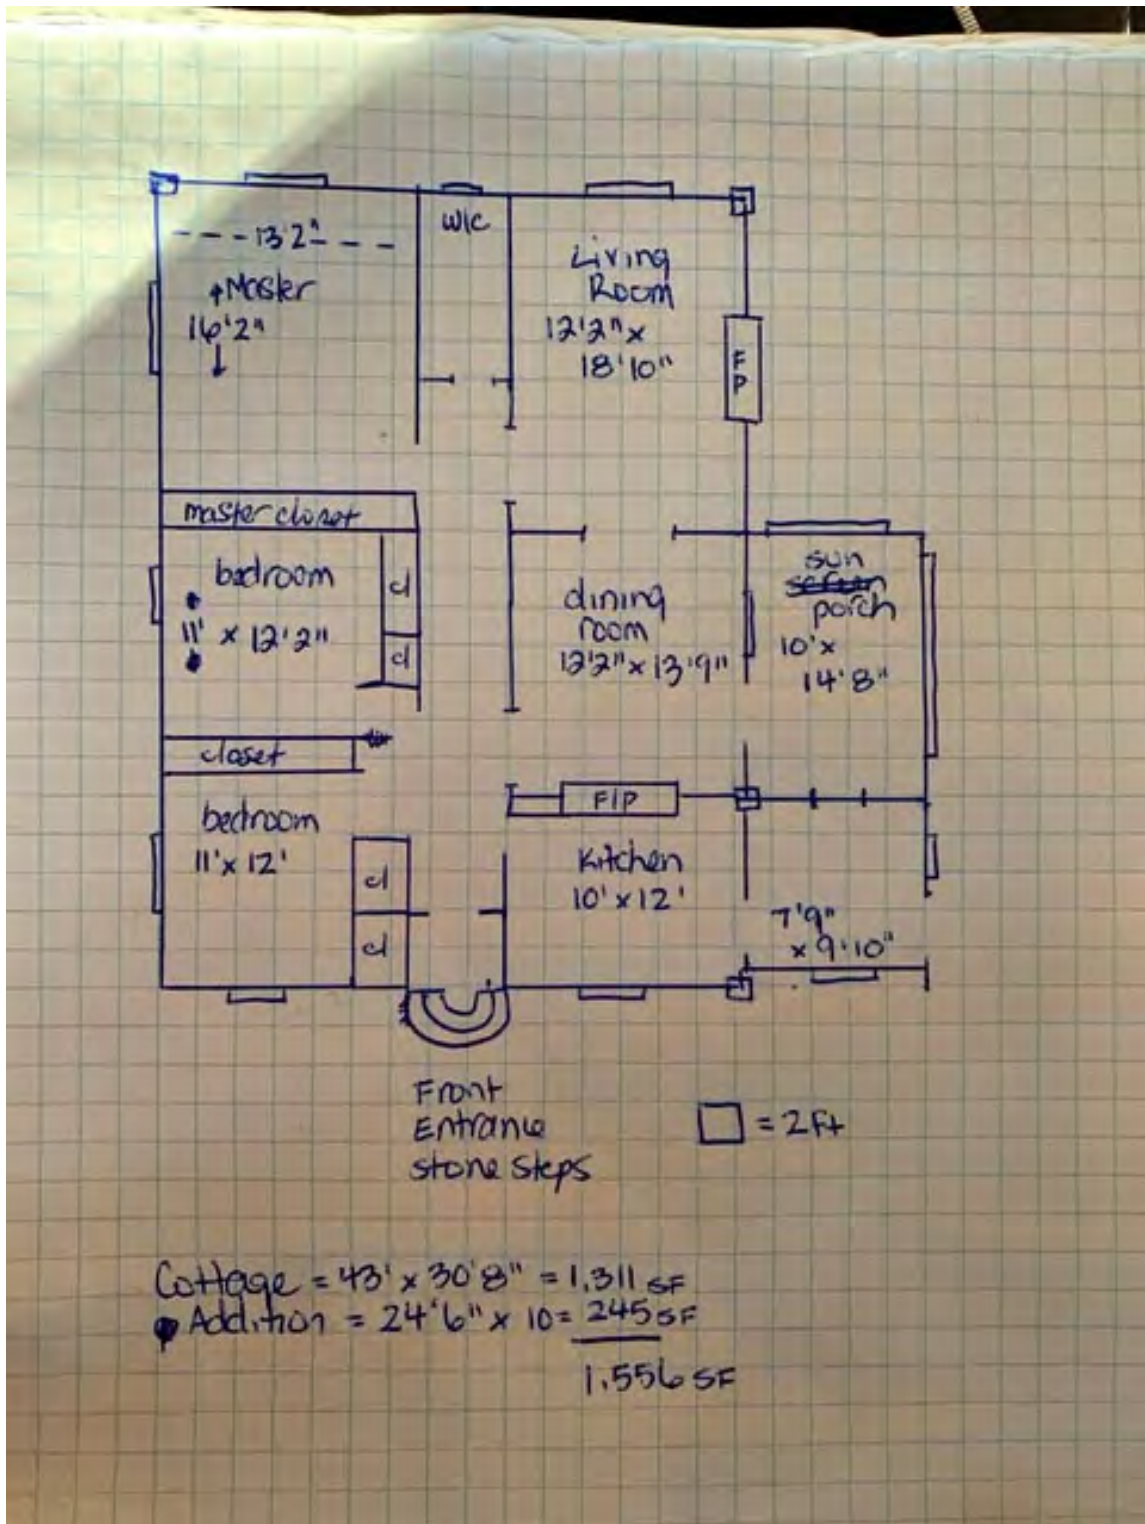 13'2"
WIC
Living
Room
12'2" x
18'10"
Master
16'2"
F
P
master closet
bedroom
11' x 12'2"
cl
cl
dining
room
12'2" x 13'9"
sun
porch
10' x
14'8"
closet
bedroom
11' x 12'
cl
cl
F/P
Kitchen
10' x 12'
7'9"
x 9'10"
Front
Entrance
stone steps
= 2 Ft
Cottage = 43' x 30'8" = 1,311 SF
Addition = 24'6" x 10 = 245 SF
1,556 SF